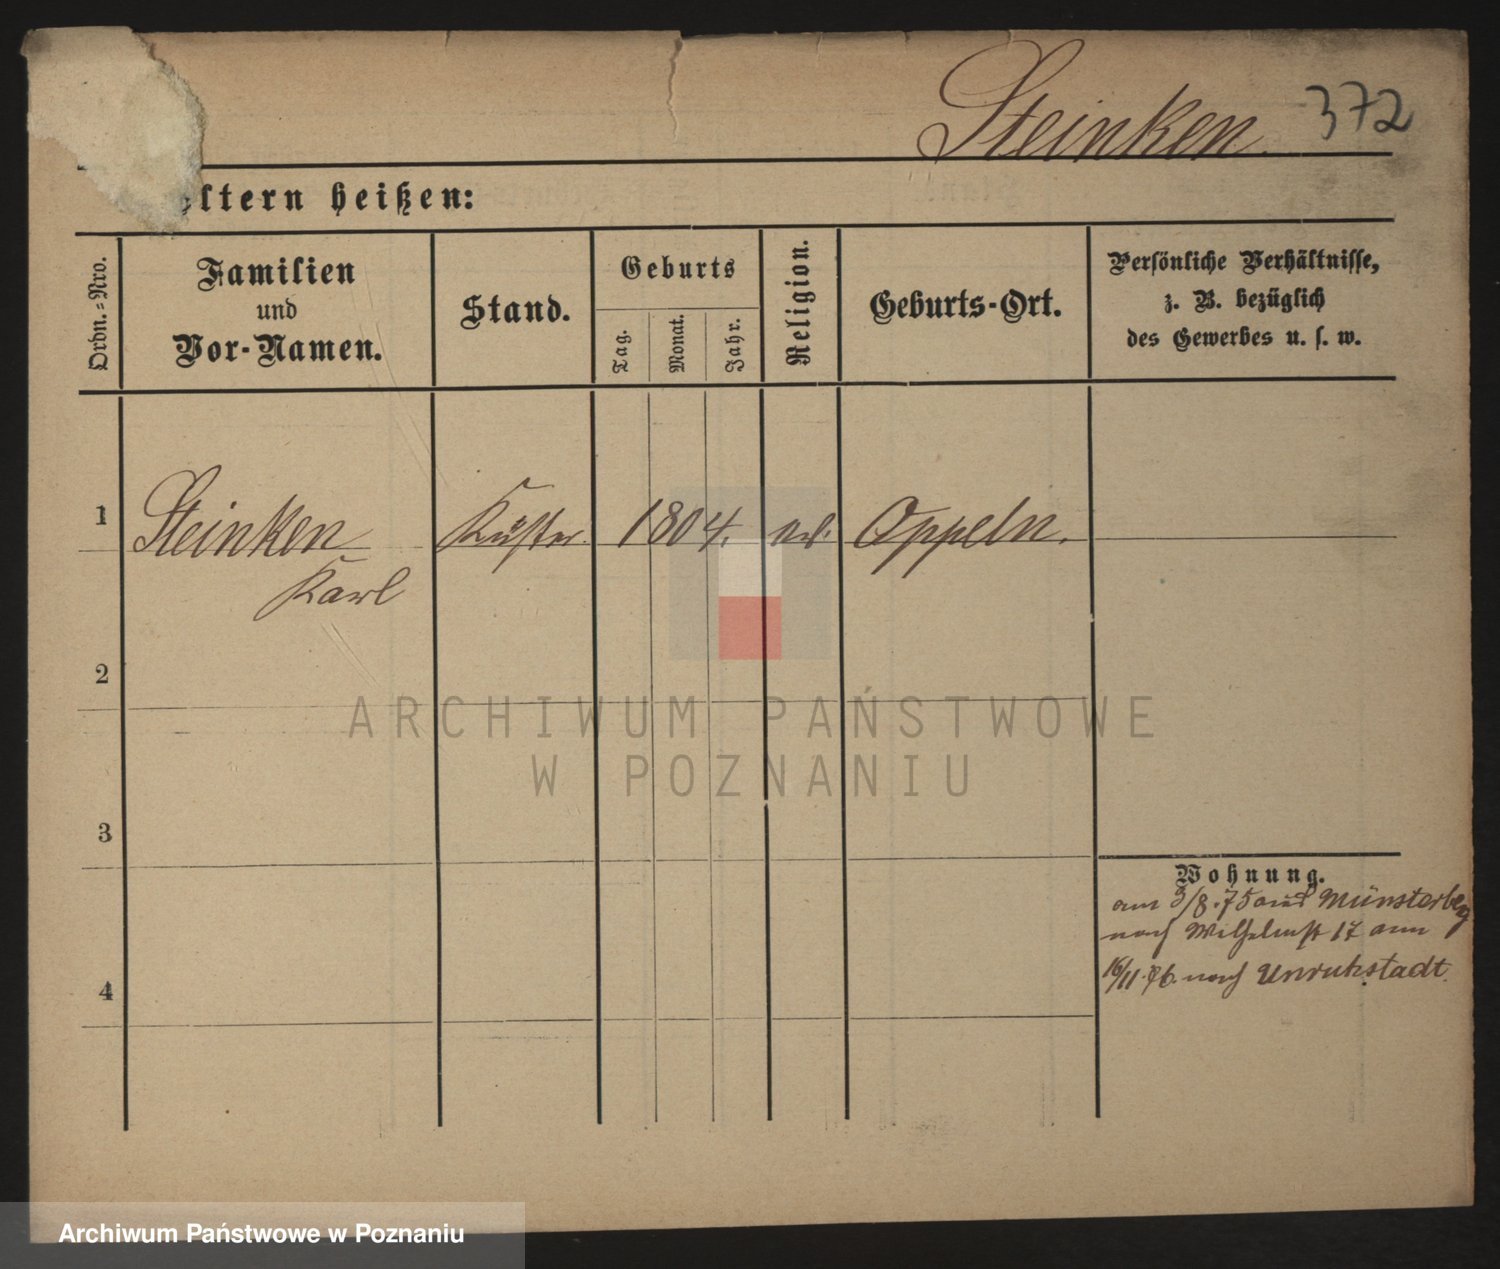 Steinken. 372
eltern heißen:
Ordn.-Nro.
Familien
und
Vor-Namen.
Stand.
Geburts
Tag.
Monat.
Jahr.
Religion.
Geburts-Ort.
Persönliche Verhältnisse,
z. B. bezüglich
des Gewerbes u. s. w.
1 Steinken Küster. 1804. Oppeln.
Karl
2
3
4
Wohnung.
am 3/8.75 aus Münsterberg
nach Wilhelmst 17 am
16/11.76. nach Unruhstadt.
ARCHIWUM PAŃSTWOWE
W POZNANIU
Archiwum Państwowe w Poznaniu